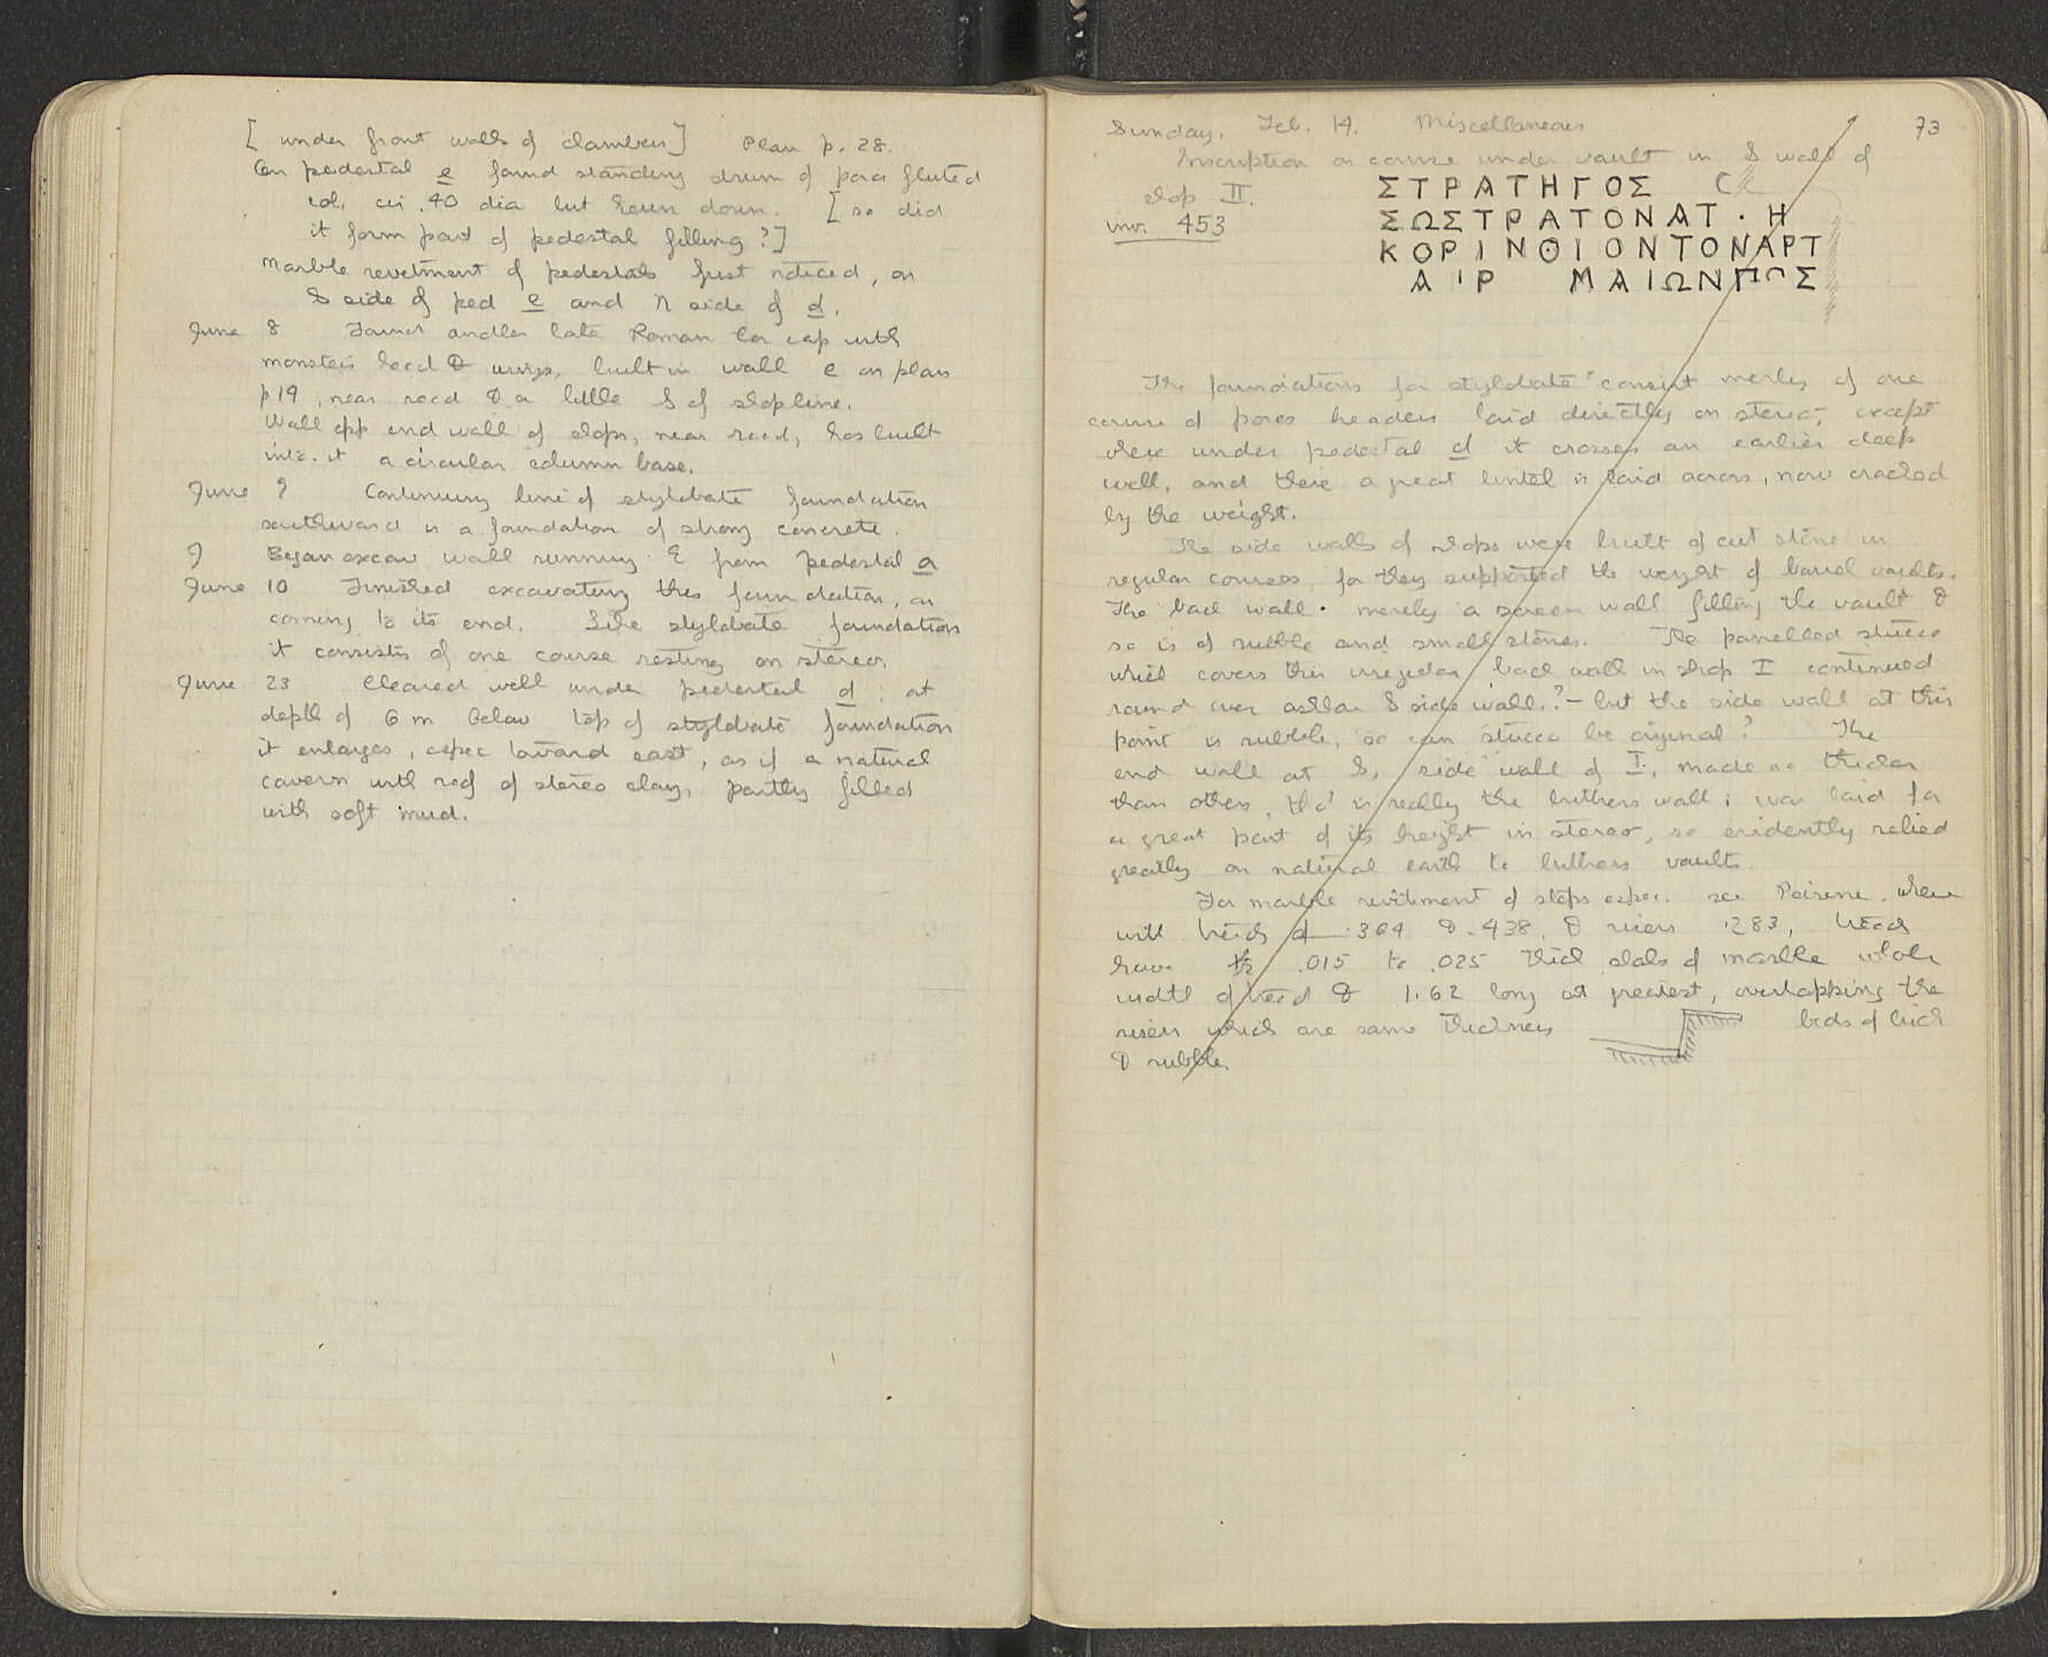 [ under front walls of chambers ] Plan p. 28.
On pedestal e found standing drum of poros fluted
col. cir .40 dia but hewn down. [ so did
it form part of pedestal filling ? ]
Marble revetment of pedestals first noticed, on
S side of ped e and N side of d.
June 8 Found another late Roman Cor cap with
monster's head & wings, built in wall e on plan
p 19, near road & a little S of shop line.
Wall opp end wall of shops, near road, has built
into it a circular column base.
June 9 Continuing line of stylobate foundation
southward is a foundation of strong concrete.
9 Began excav wall running E from pedestal a
June 10 Finished excavating this foundation, on
coming to its end. Like stylobate foundation
it consists of one course resting on stereo.
June 23 Cleared well under pedestal d : at
depth of 6 m below top of stylobate foundation
it enlarges, espec toward east, as if a natural
cavern with roof of stereo clay, partly filled
with soft mud.
73
Sunday, Feb. 14. Miscellaneous
Inscription on course under vault in S wall of
shop II.
inv. 453
ΣΤΡΑΤΗΓΟΣ C
ΣΩΣΤΡΑΤΟΝΑΤ · Η
ΚΟΡΙΝΘΙΟΝΤΟΝΑΡΤ
Α Ι Ρ ΜΑΙΩΝΠΟΣ
The foundations for stylobate consist merely of one
course of poros headers laid directly on stereo, except
where under pedestal d it crosses an earlier deep
well, and there a great lintel is laid across, now cracked
by the weight.
The side walls of shops were built of cut stone in
regular courses, for they supported the weight of barrel vaults.
The back wall · merely a screen wall filling the vault &
so is of rubble and small stones. The panelled stucco
which covers this irregular back wall in shop I continued
round over ashlar S side wall.? – but the side wall at this
point is rubble, so can stucco be original? The
end wall at S, side wall of I, made no thicker
than others, tho' is really the buttress wall ; was laid for
a great part of its height in stereo, so evidently relied
greatly on natural earth to buttress vaults.
For marble revetment of steps espec. see Peirene, where
with treads of .364 & .438, & risers .283, treads
have .015 to .025 thick slabs of marble whole
width of tread & 1.62 long at greatest, overlapping the
risers which are same thickness beds of brick
& rubble.